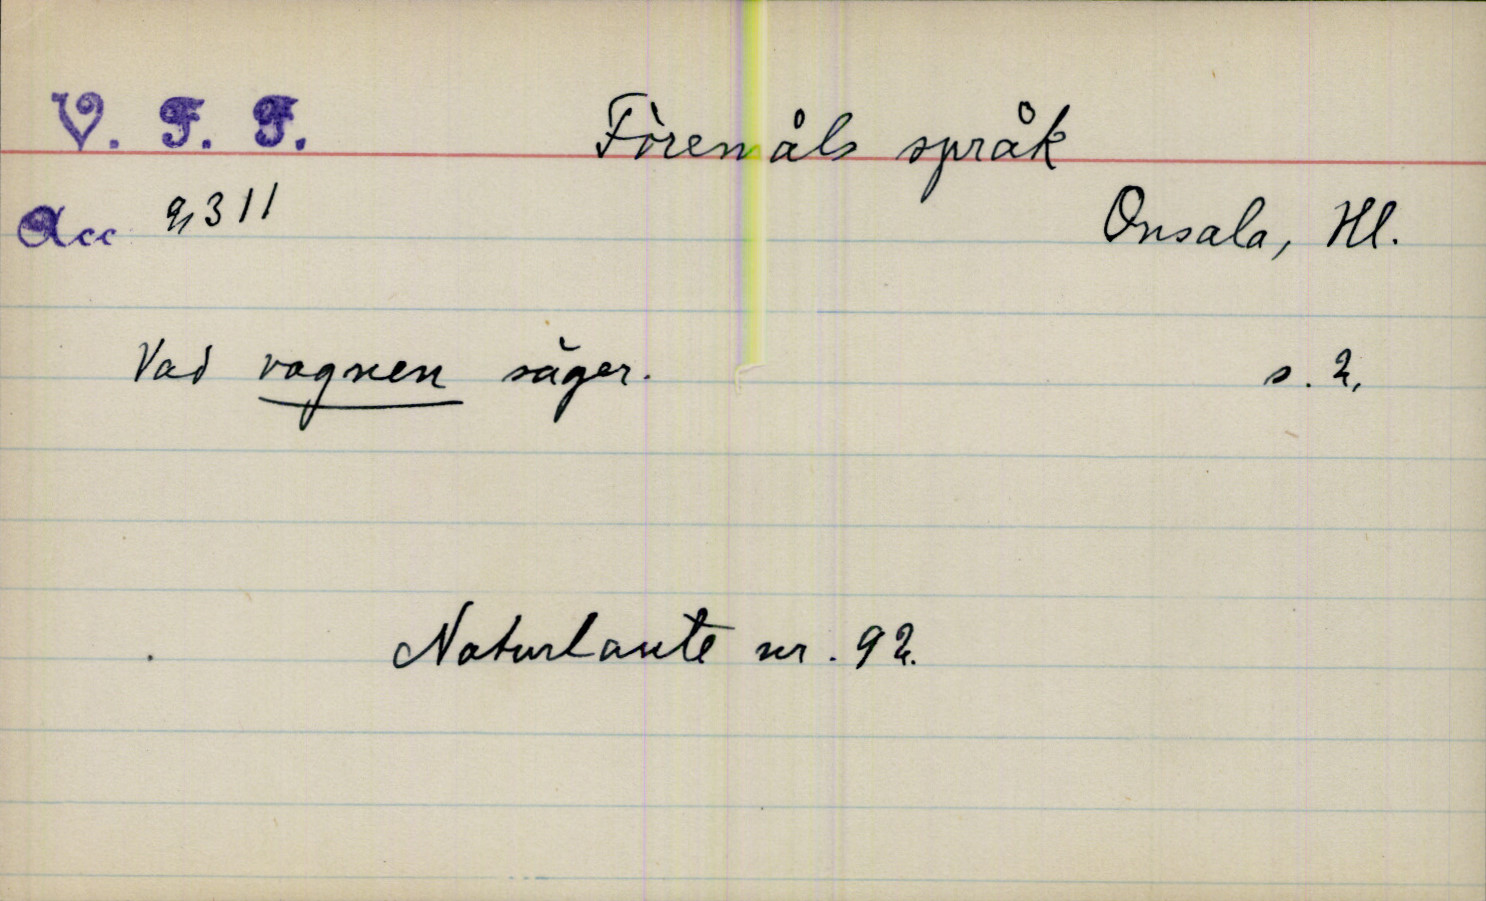 V. F. F. Föremåls språk
Acc 2311 Onsala, Hl.
Vad vagnen säger. s. 2.
Naturlaute nr. 92.